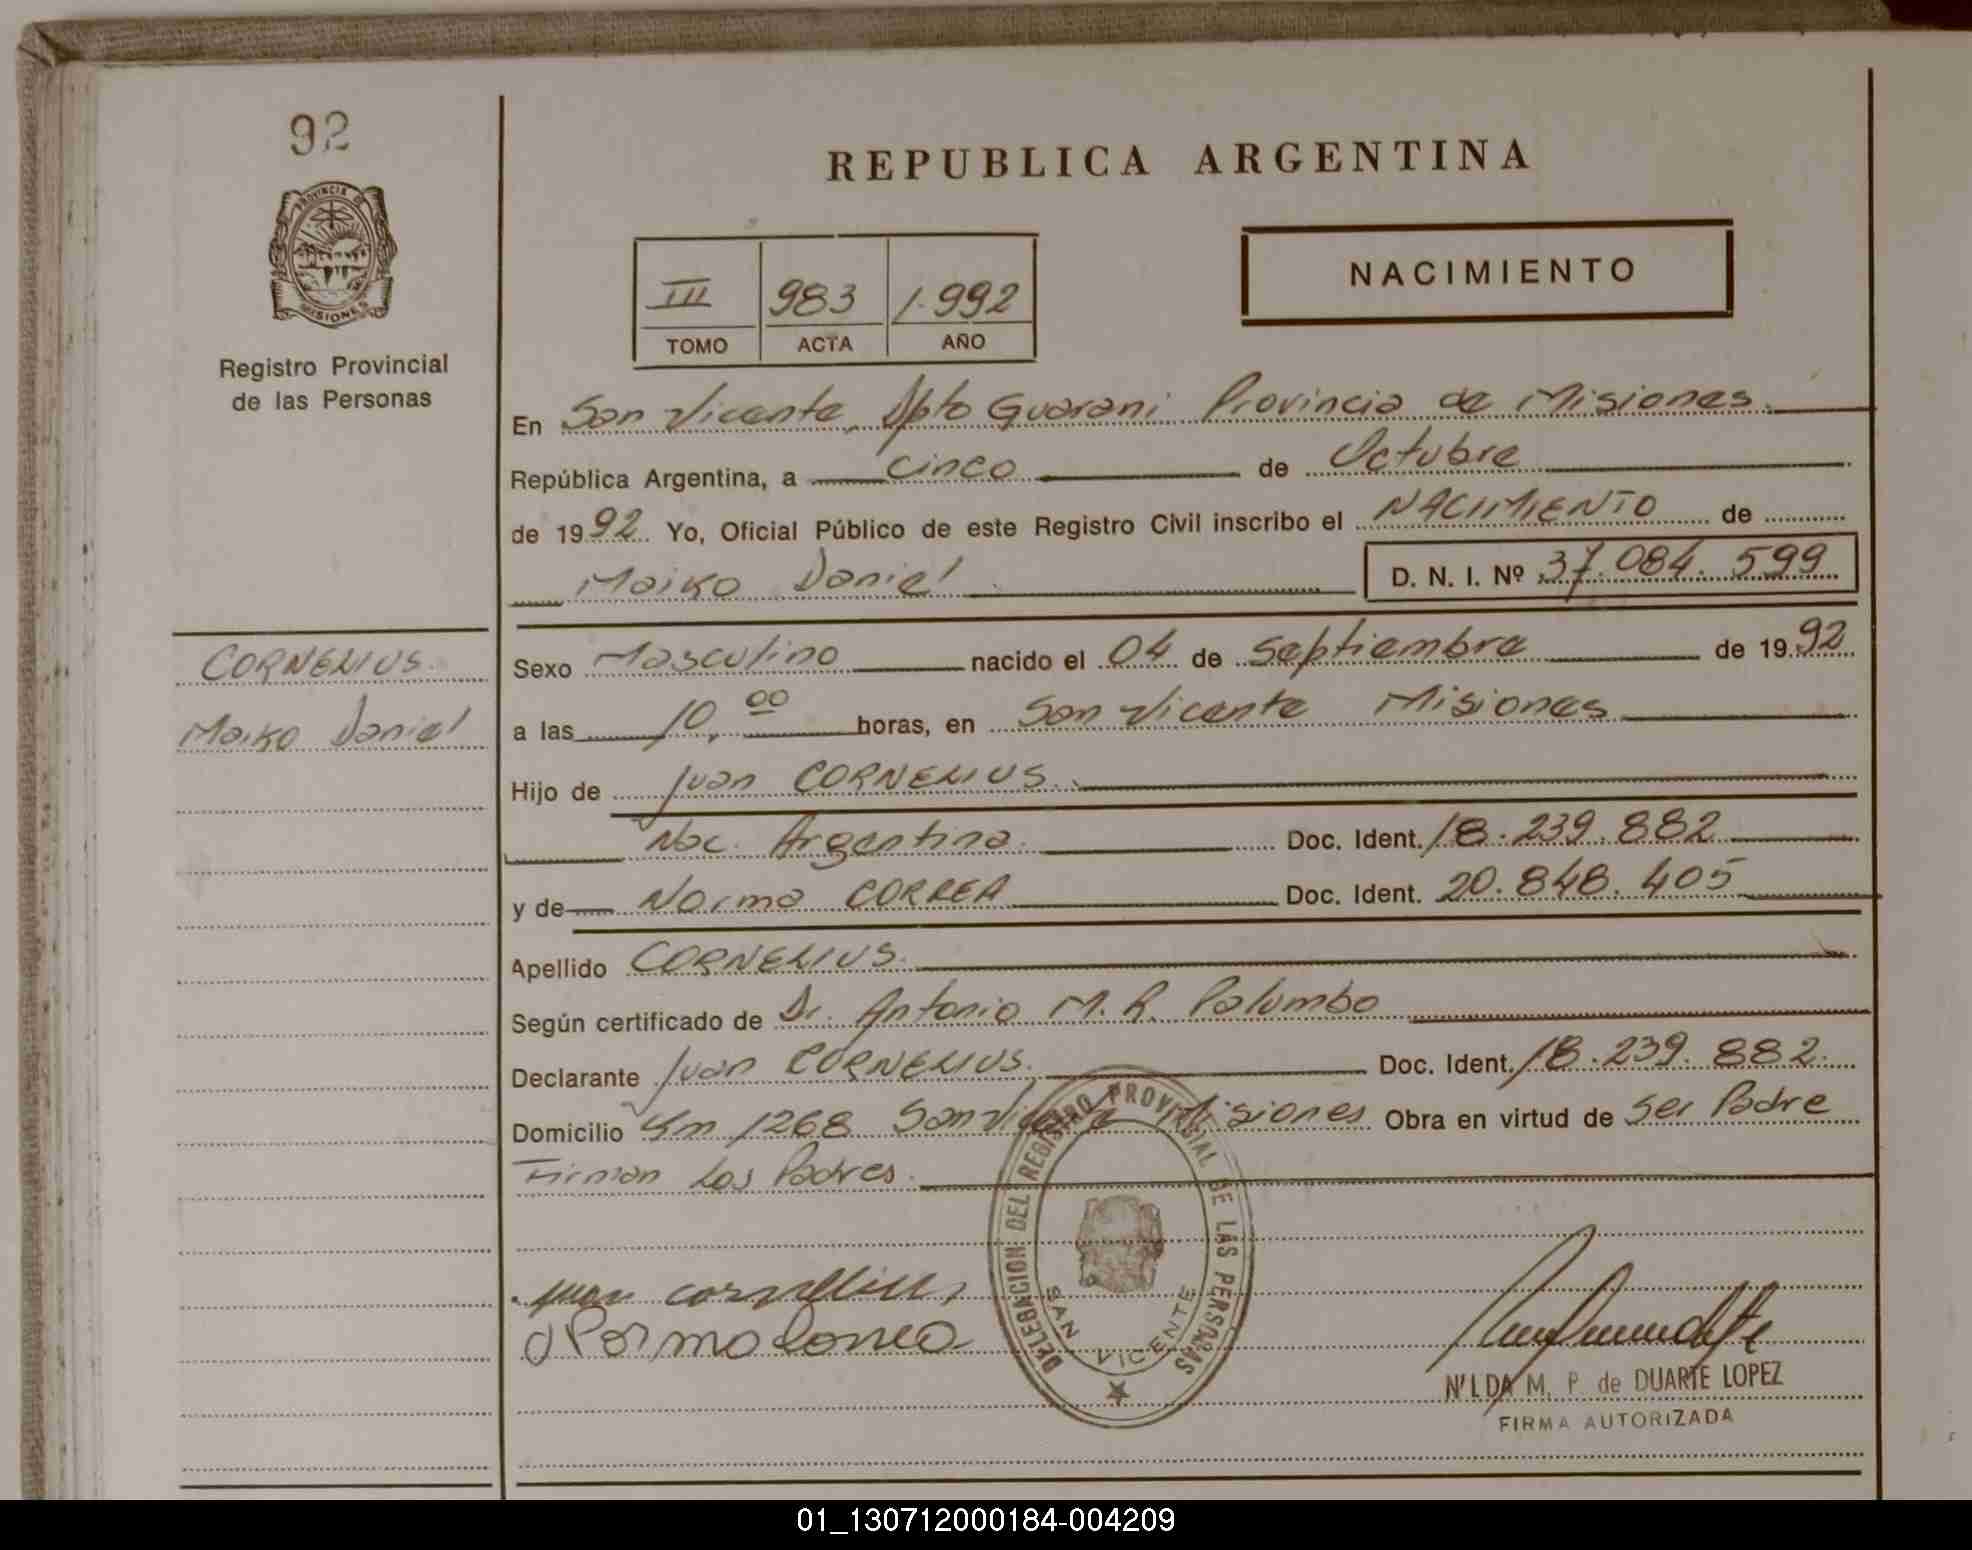 92
PROVINCIA DE
MISIONES
Registro Provincial
de las Personas
REPUBLICA ARGENTINA
NACIMIENTO
III 983 1.992
TOMO ACTA AÑO
En San Vicente, Dpto Guarani Provincia de Misiones
República Argentina, a cinco de Octubre
de 1992. Yo, Oficial Público de este Registro Civil inscribo el NACIMIENTO de
Maiko Daniel D. N. I. Nº 37.084.599
CORNELIUS
Maiko Daniel
Sexo Masculino nacido el 04 de Septiembre de 1992
a las 10,00 horas, en San Vicente Misiones
Hijo de Juan CORNELIUS.
Nac. Argentina. Doc. Ident. 18.239.882
y de Norma CORREA Doc. Ident. 20.848.405
Apellido CORNELIUS.
Según certificado de Dr. Antonio M. R. Palumbo
Declarante Juan CORNELIUS. Doc. Ident. 18.239.882.
Domicilio Km 1268 San Vicente Misiones Obra en virtud de Ser Padre
Firman Los Padres.
DELEGACION DEL REGISTRO PROVINCIAL DE LAS PERSONAS
SAN VICENTE
Juan
Norma Correa
NILDA M. P. de DUARTE LOPEZ
FIRMA AUTORIZADA
01_130712000184-004209